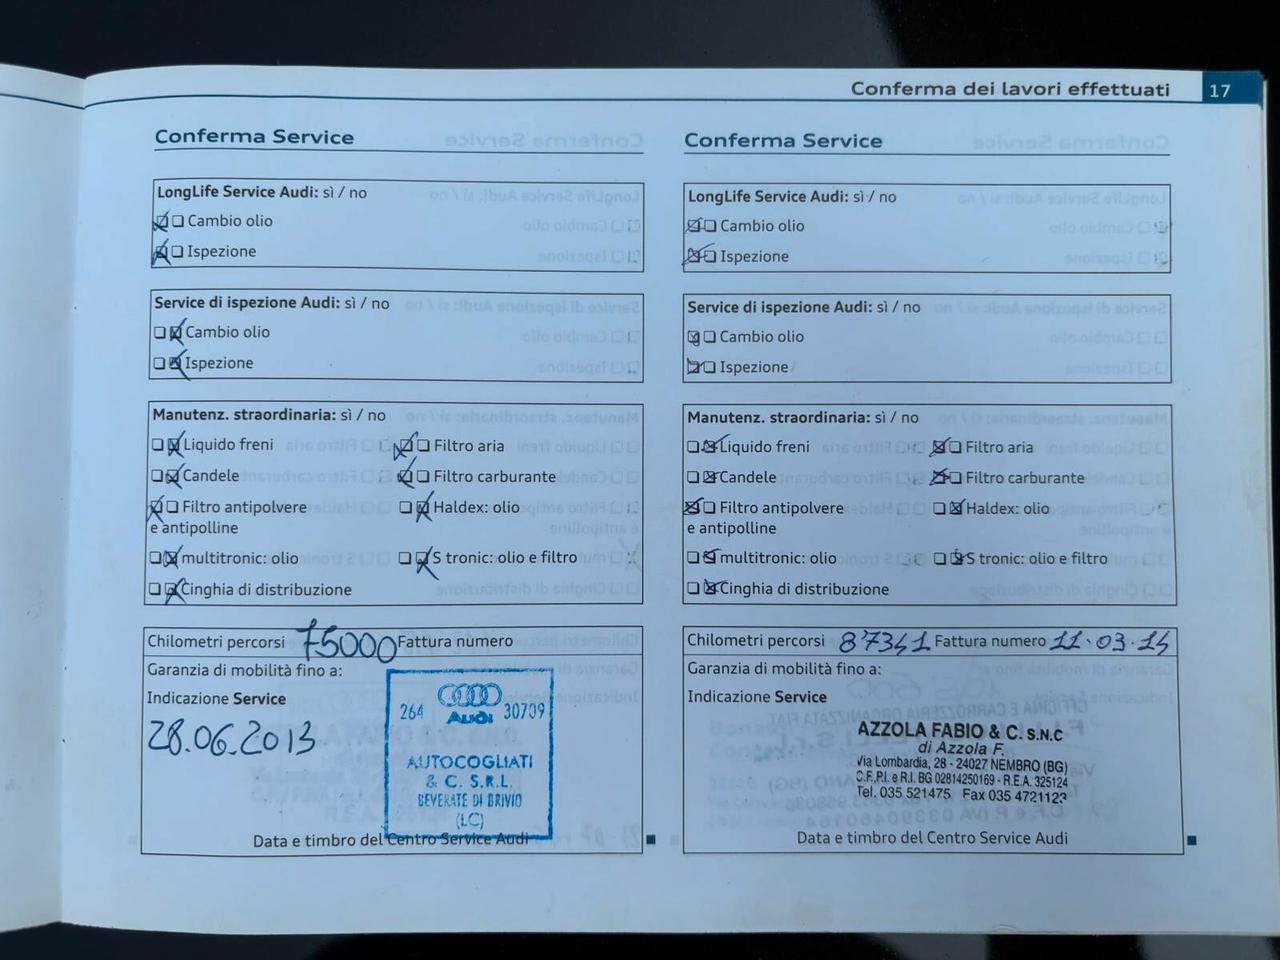 Conferma dei lavori effettuati 17
Conferma Service
LongLife Service Audi: sì / no
Cambio olio
Ispezione
Service di ispezione Audi: sì / no
Cambio olio
Ispezione
Manutenz. straordinaria: sì / no
Liquido freni Filtro aria
Candele Filtro carburante
Filtro antipolvere Haldex: olio
e antipolline
multitronic: olio S tronic: olio e filtro
Cinghia di distribuzione
Chilometri percorsi 75000 Fattura numero
Garanzia di mobilità fino a:
Indicazione Service
28.06.2013
264 Audi 30709
AUTOCOGLIATI
& C. S.R.L.
BEVERATE DI BRIVIO
(LC)
Data e timbro del Centro Service Audi
Conferma Service
LongLife Service Audi: sì / no
Cambio olio
Ispezione
Service di ispezione Audi: sì / no
Cambio olio
Ispezione
Manutenz. straordinaria: sì / no
Liquido freni Filtro aria
Candele Filtro carburante
Filtro antipolvere Haldex: olio
e antipolline
multitronic: olio S tronic: olio e filtro
Cinghia di distribuzione
Chilometri percorsi 87341 Fattura numero 11.03.14
Garanzia di mobilità fino a:
Indicazione Service
AZZOLA FABIO & C. S.N.C
di Azzola F.
Via Lombardia, 28 - 24027 NEMBRO (BG)
C.F.P.I. e R.I. BG 02814250169 - R.E.A. 325124
Tel. 035 521475 Fax 035 4721123
Data e timbro del Centro Service Audi